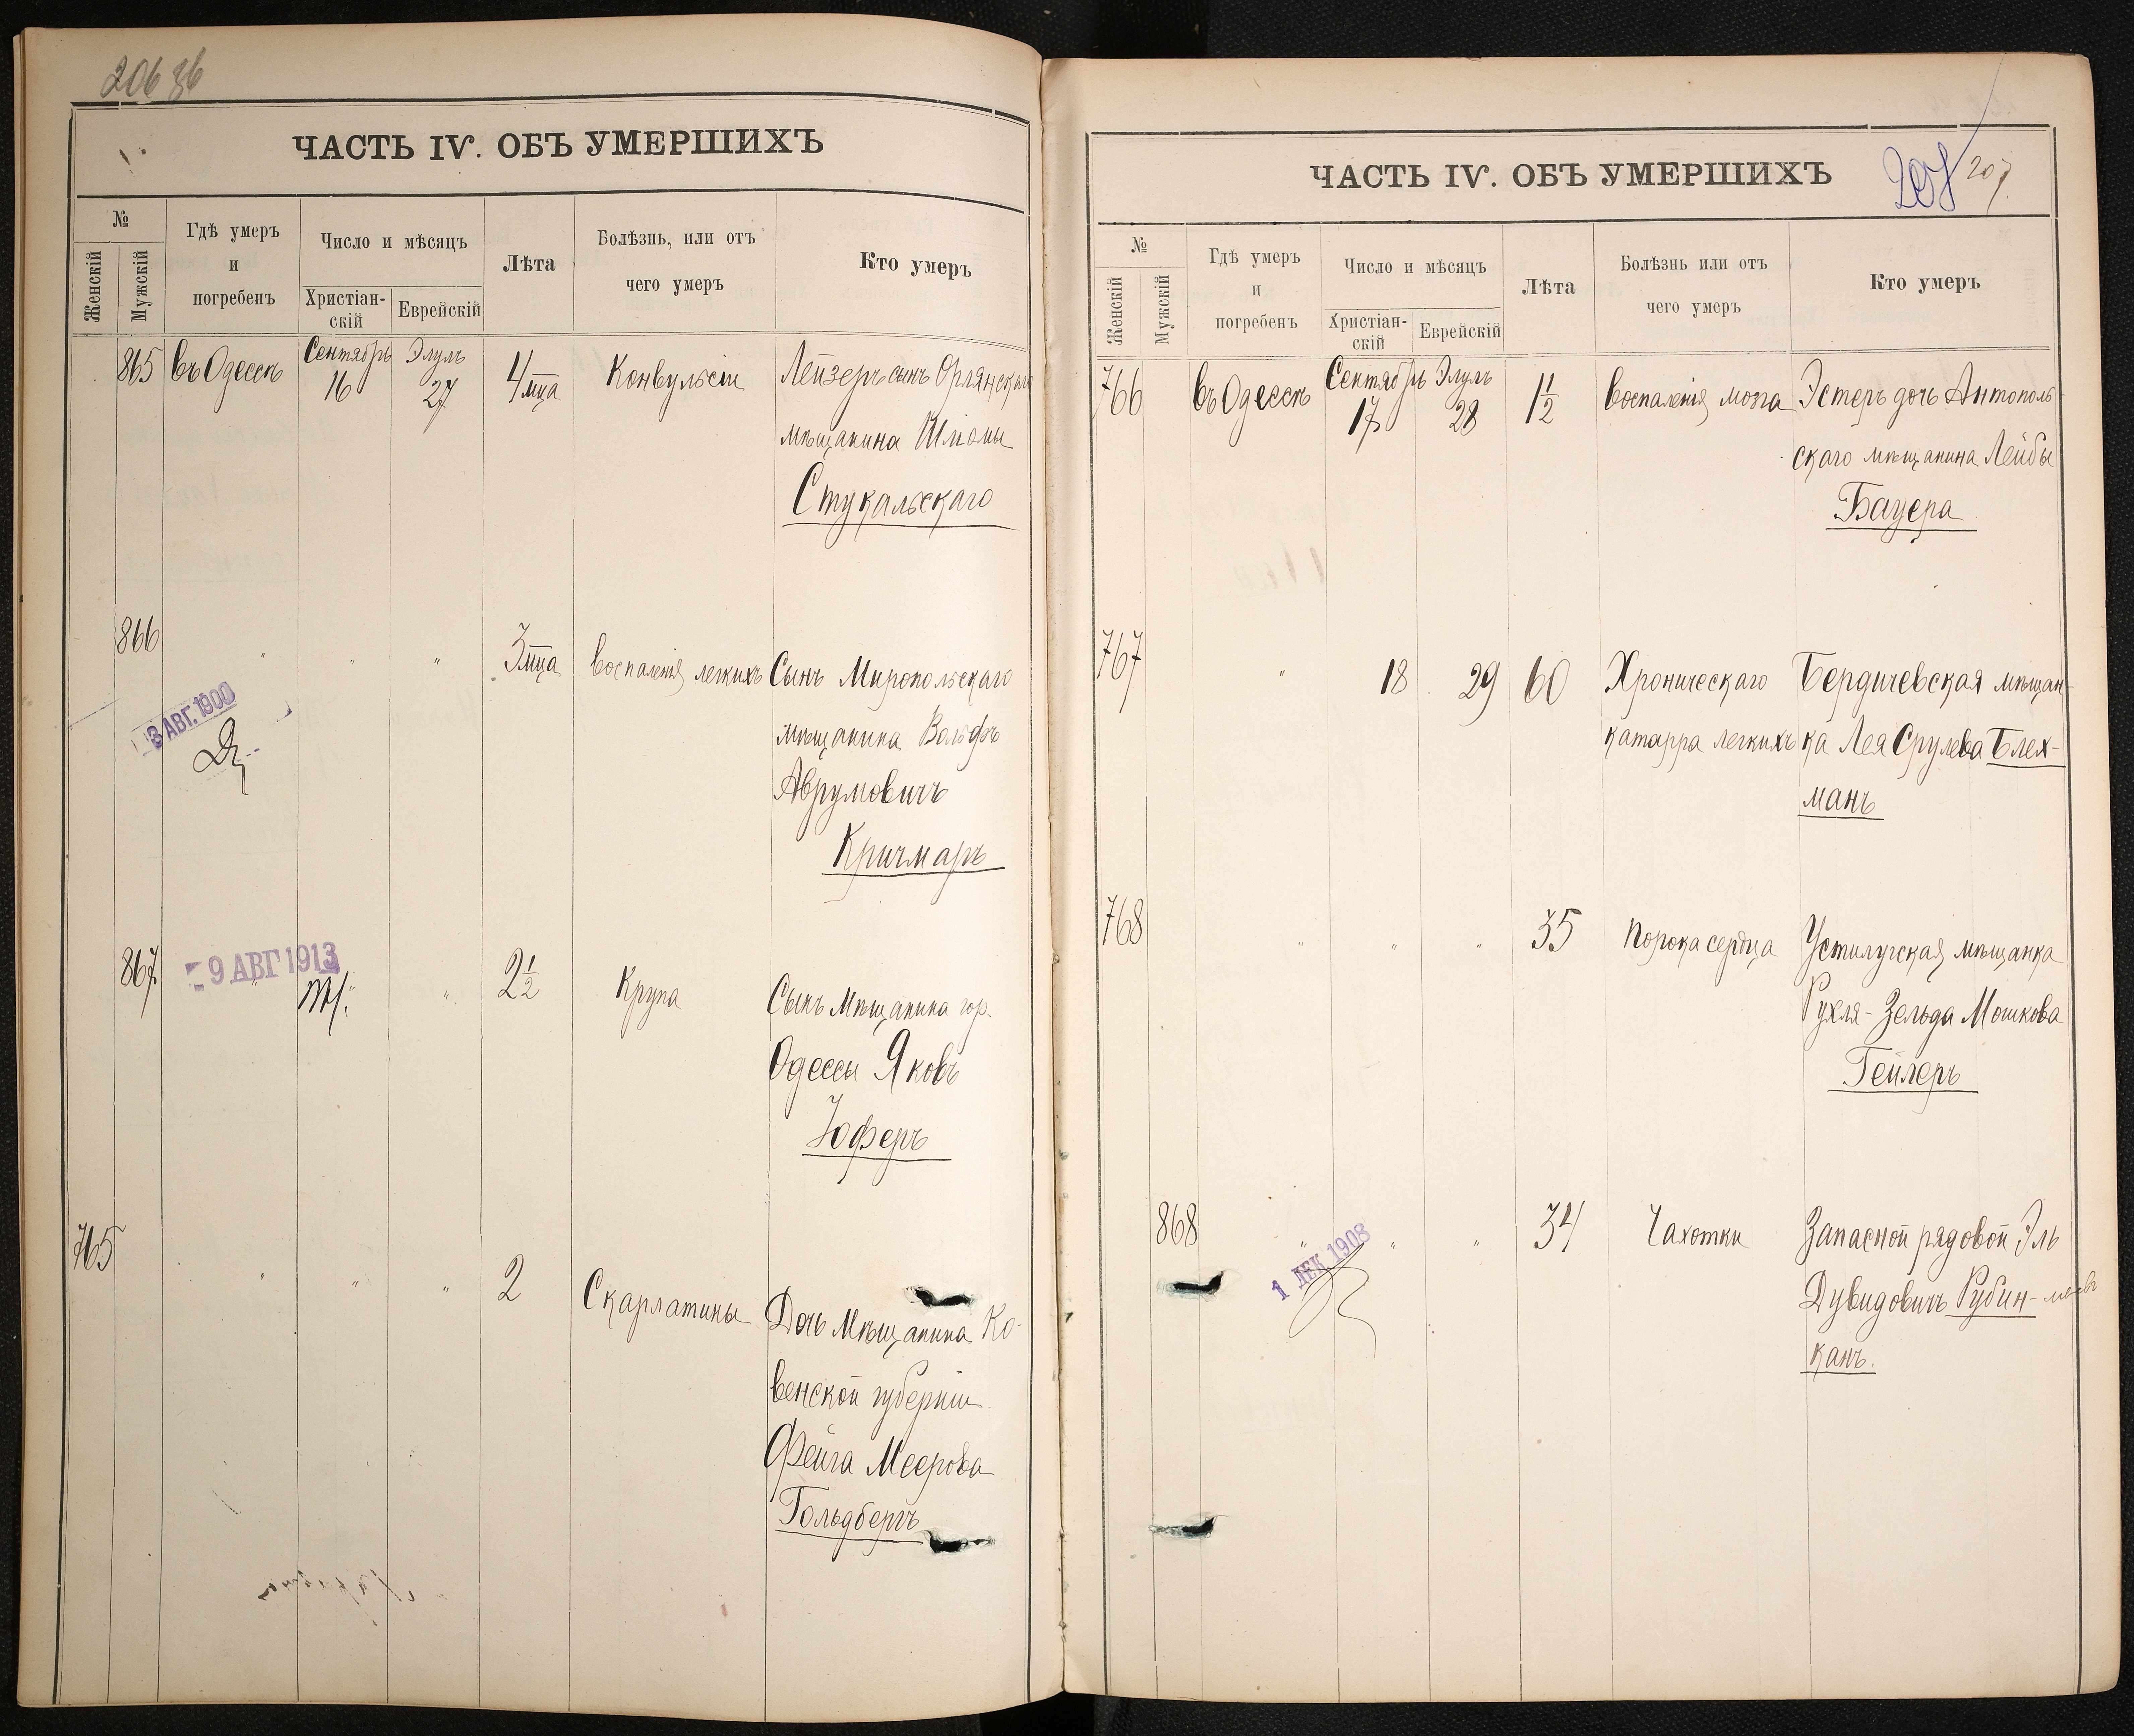 206 зб
ЧАСТЬ IV. ОБЪ УМЕРШИХЪ
№
Женскій
Мужскій
Гдѣ умеръ
и
погребенъ
Число и мѣсяцъ
Христіан-
скій
Еврейскій
Лѣта
Болѣзнь, или отъ
чего умеръ
Кто умеръ
865 въ Одессѣ Сентябрь 16 Элулъ 27 4 мца Конвульсіи Лейзеръ сынъ Орлянскаго
мѣщанина Шліомы
Стукальскаго
866 " " " 3 мца воспаленія легкихъ Сынъ Миропольскаго
мѣщанина Вольфъ
Аврумовичъ
Кричмаръ
3 АВГ. 1900
867 " " " 2 1/2 Крупа Сынъ Мѣщанина гор.
Одессы Яковъ
Юферъ
9 АВГ 1913
765 " " " 2 Скарлатины Дочь Мѣщанина Ко-
венской губерніи
Фейга Меерова
Гольдбергъ
ЧАСТЬ IV. ОБЪ УМЕРШИХЪ
207 207.
№
Женскій
Мужскій
Гдѣ умеръ
и
погребенъ
Число и мѣсяцъ
Христіан-
скій
Еврейскій
Лѣта
Болѣзнь или отъ
чего умеръ
Кто умеръ
766 въ Одессѣ Сентябрь 17 Элулъ 28 1 1/2 воспаленія мозга Эстеръ дочь Антополь-
скаго мѣщанина Лейбы
Бауера
767 " 18 29 60 Хроническаго Бердичевская мѣщан-
катарра легкихъ ка Лея Срулева Блех-
манъ
768 " " " 35 Порока сердца Устилугская мѣщанка
Рухля-Зельда Мошкова
Гейлеръ
868 " " " 34 Чахотки Запасной рядовой Эль
Дувидовичъ Рубин-
канъ.
1 ДЕК 1908